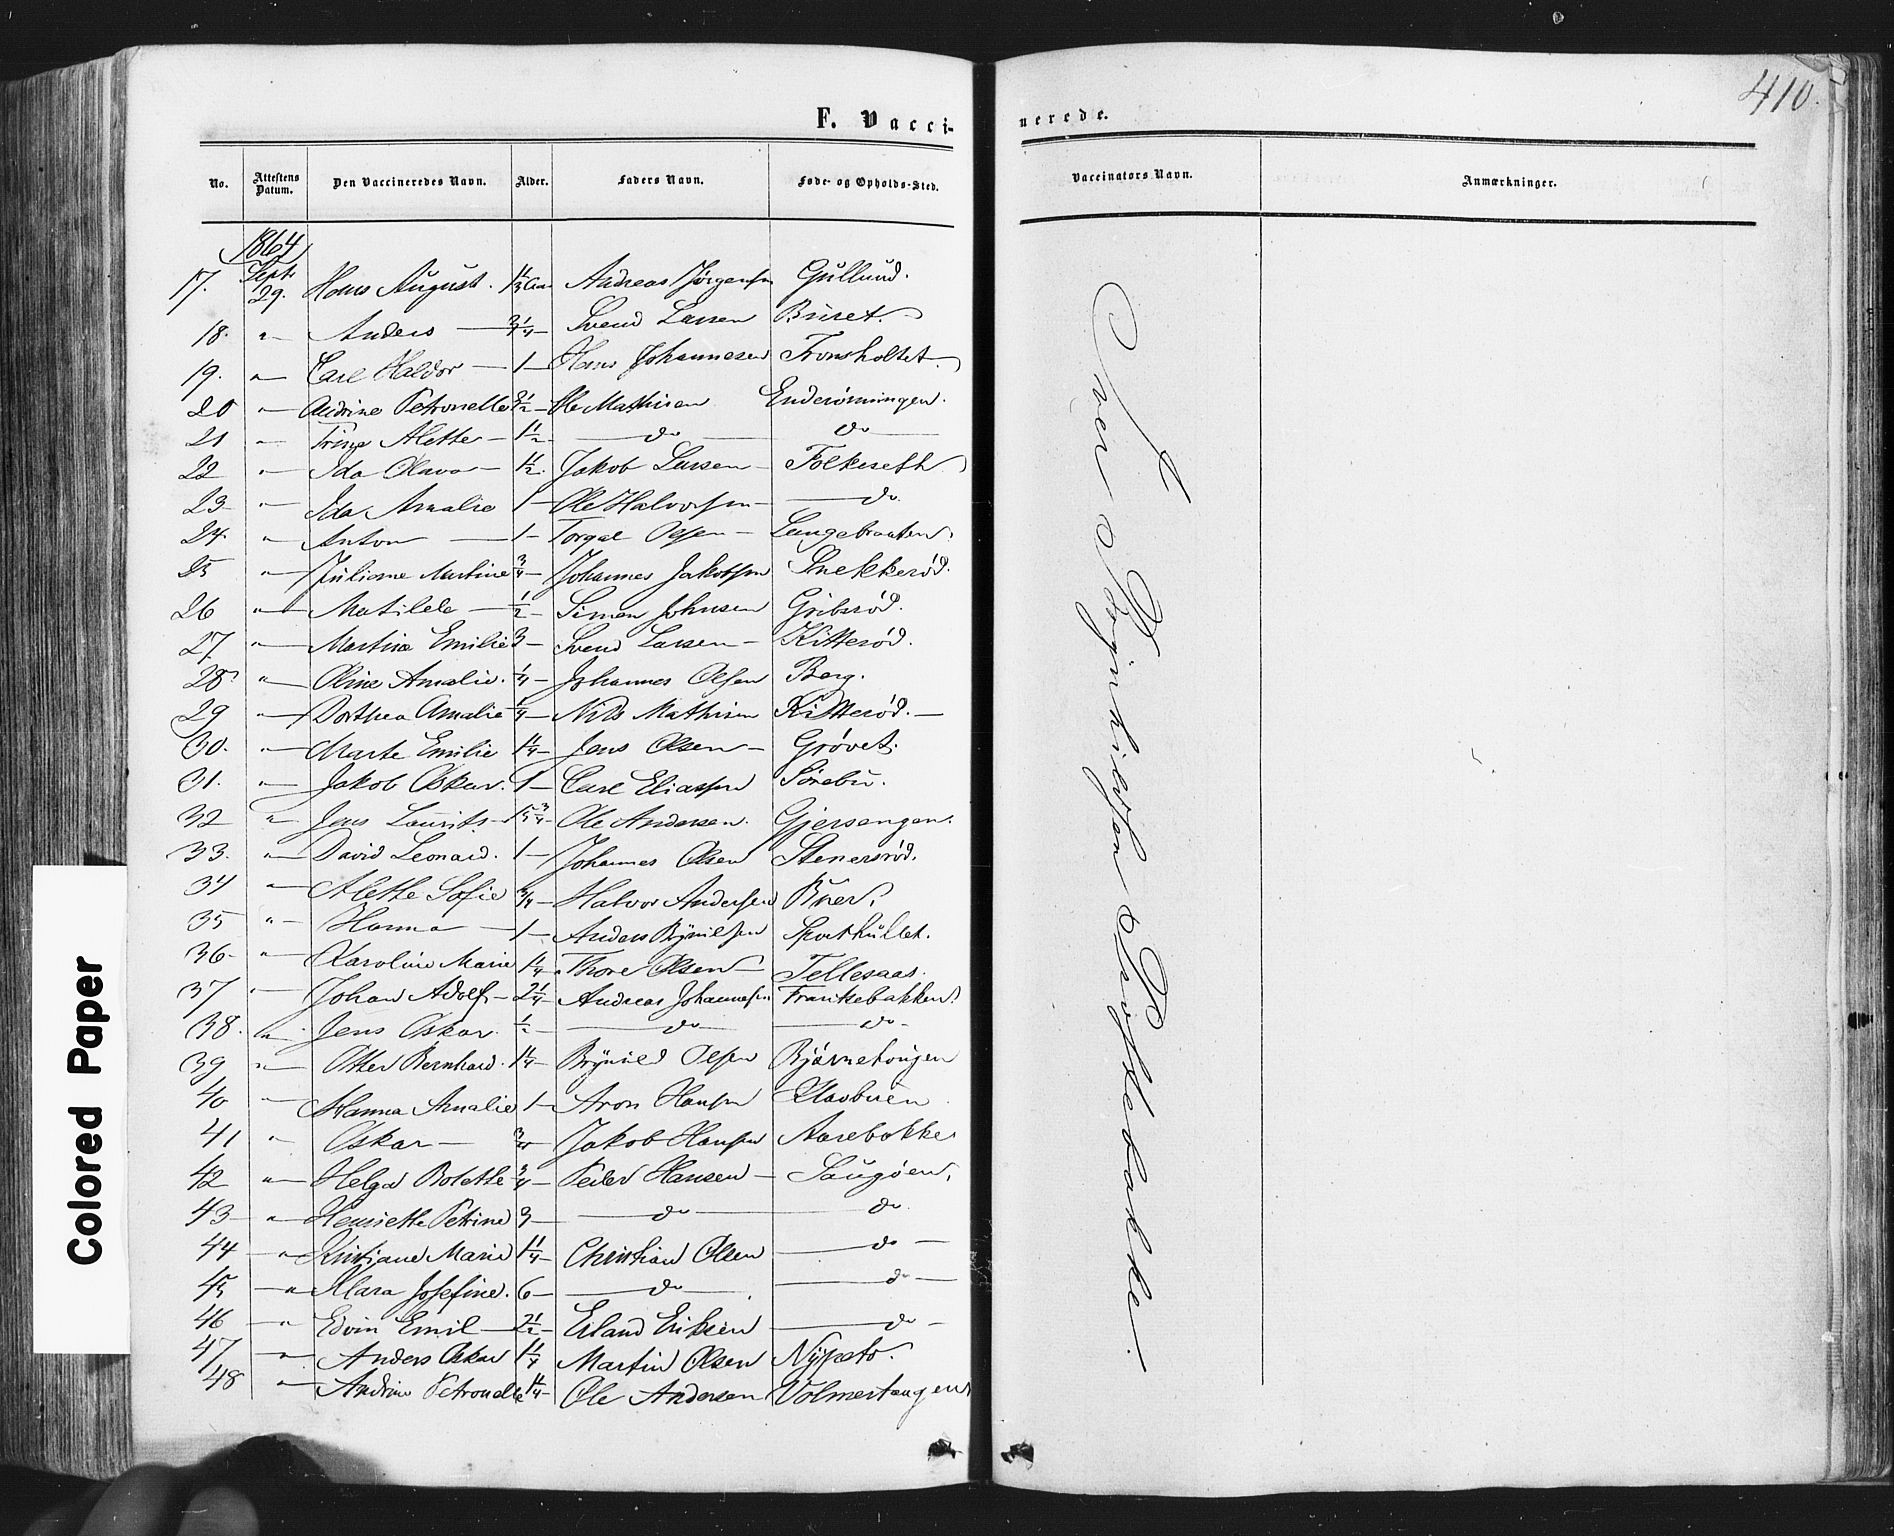 410.
F. Vaccinerede.
No. Attestens Datum. Den Vaccineredes Navn. Alder. Faders Navn. Føde- og Opholds-Sted. Vaccinators Navn. Anmærkninger.
1864
17. Sept. 29. Hans August. 1 1/3 Aar Andreas Jørgensen Gullund.
18. " Anders — Svend Larsen Buset.
19. " Carl Haldor — 1 — Hans Johannesen Fronsholtet
20 " Andrine Petronelle 3 1/2 — Ole Mathisen Enderømningen.
21 " Trine Alette — 1 1/2 — do — do —
22 " Ida Olava — 1 1/2 Jakob Larsen — Folkeseth
23 " Ida Amalie 1 — Ole Halvorsen — do
24 " Anton — 1 — Torgal Olsen — Langebraaten
25 " Juliane Martine 3/4 — Johannes Jakobsen Snekkerød.
26 " Matilde — 1/2 — Simen Johnsen Gribsrød.
27. " Martine Emilie 3 — Svend Larsen — Kitterød.
28 " Oline Amalie. 1/4 — Johannes Olsen Berg.
29 " Dorthea Amalie 1/4 — Nils Mathisen Kitterød. —
30. " Marte Emilie 1 1/4 — Jens Olsen — Grøvet.
31. " Jakob Oskar. 1 — Carl Eliassen Sørebu.
32 " Jens Laurits — Ole Andersen. Gjersengen.
33. " David Leonard. 1 — Johannes Olsen Stenersrød.
34 " Alette Sofie 3/4 — Halvor Andersen Buer.
35 " Hanna — 1 — Anders Brynilsen Sporthullet.
36 " Karoline Marie 1 1/4 Thore Olsen — Tellesaas.
37 " Johan Adolf — 2 1/4 — Andreas Johannesen Frankebakken
38. " Jens Oskar. 1/2 — do — do —
39 " Otter Bernhard. 1 1/4 — Brynild Olsen Bjørnehougen
40 " Hanna Amalie 1 — Aron Hansen
41 " Oskar — 3/4 Jakob Hansen Aarebakke
42 " Helga Bolette 3/4 — Peder Hansen — Saugøen.
43 — " Henriette Petrine 3 — do — do
44 — " Kristiane Marie 1 1/4 — Christian Olsen — do —
45 — " Klara Josefine. 6 — do — do —
46 — " Edvin Emil — 2 1/2 — Erland Eriksen — do —
47 " Anders Oskar 1 1/4 Martin Olsen Nypeto.
48 " Andrine Petronelle 1/4 — Ole Andersen Volmertangen
Iver Brynhildsen Buskebakke.
Colored Paper